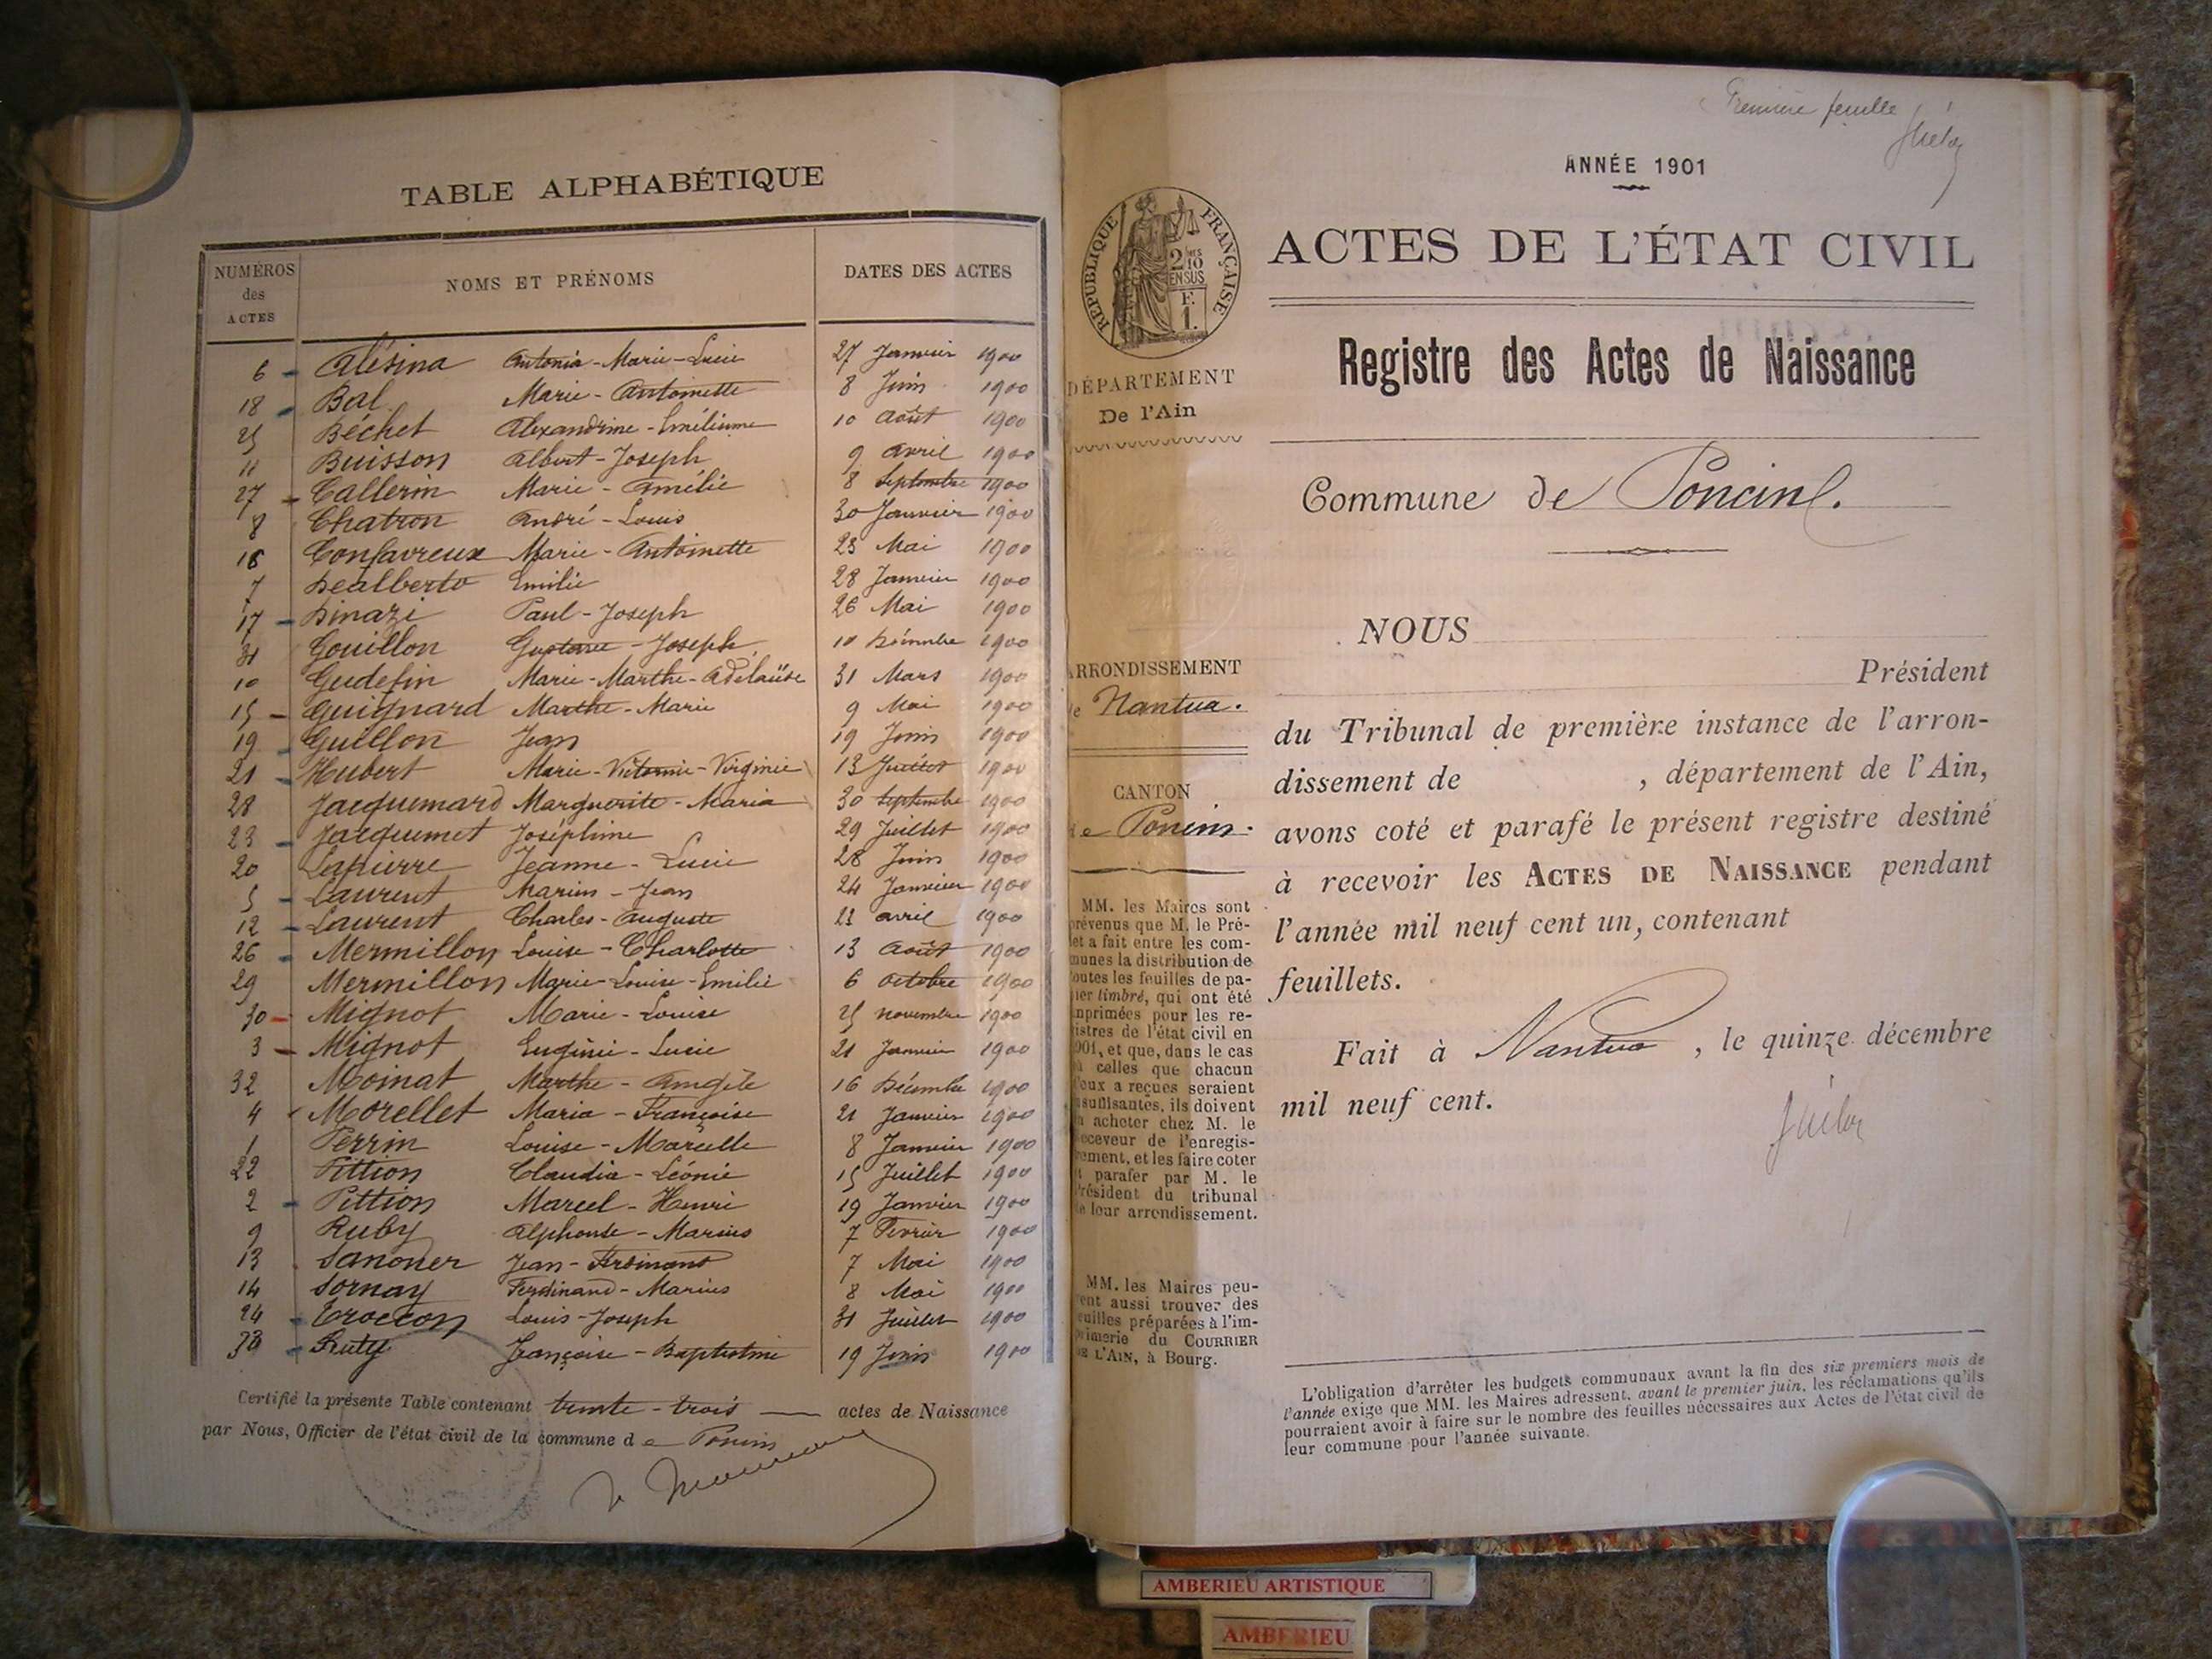 TABLE ALPHABÉTIQUE
NUMÉROS des ACTES NOMS ET PRÉNOMS DATES DES ACTES
6 Alésina Antonia-Marie-Lucie 27 Janvier 1900
18 Bal Marie-Antoinette 8 Juin 1900
25 Béchet Alexandrine-Emélienne 10 Août 1900
11 Buisson Albert-Joseph 9 Avril 1900
27 Callerin Marie-Amélie 8 Septembre 1900
8 Chatron André-Louis 30 Janvier 1900
16 Confavreux Marie-Antoinette 23 Mai 1900
7 Dealberto Emilie 28 Janvier 1900
17 Dinazi Paul-Joseph 26 Mai 1900
31 Gouillon Gustave-Joseph 10 Décembre 1900
10 Gudefin Marie-Marthe-Adélaïde 31 Mars 1900
15 Guignard Marthe-Marie 9 Mai 1900
19 Guillon Jean 19 Juin 1900
21 Hubert Marie-Victorine-Virginie 13 Juillet 1900
28 Jacquemard Marguerite-Maria 30 Septembre 1900
23 Jacquemet Joséphine 29 Juillet 1900
20 Lapierre Jeanne-Lucie 28 Juin 1900
5 Laurent Marius-Jean 24 Janvier 1900
12 Laurent Charles-Auguste 23 avril 1900
26 Mermillon Louise-Charlotte 13 Août 1900
29 Mermillon Marie-Louise-Emilie 6 Octobre 1900
30 Mignot Marie-Louise 25 novembre 1900
3 Mignot Eugénie-Lucie 21 Janvier 1900
32 Moinat Marthe-Angèle 16 Décembre 1900
4 Morellet Maria-Françoise 21 Janvier 1900
1 Perrin Louise-Marcelle 8 Janvier 1900
22 Pittion Claudia-Léonie 15 Juillet 1900
2 Pittion Marcel-Henri 19 Janvier 1900
9 Ruby Alphonse-Marius 7 Février 1900
13 Sanoner Jean-Ferdinand 7 Mai 1900
14 Sornay Ferdinand-Marius 8 Mai 1900
24 Troccon Louis-Joseph 31 Juillet 1900
33 Ruty Françoise-Baptistine 19 Juin 1900
Certifié la présente Table contenant trente-trois actes de Naissance
par Nous, Officier de l'état civil de la commune de Poncin
Première feuille
ANNÉE 1901
ACTES DE L'ÉTAT CIVIL
Registre des Actes de Naissance
Commune de Poncin.
NOUS
Président
du Tribunal de première instance de l'arron-
dissement de , département de l'Ain,
avons coté et parafé le présent registre destiné
à recevoir les ACTES DE NAISSANCE pendant
l'année mil neuf cent un, contenant
feuillets.
Fait à Nantua, le quinze décembre
mil neuf cent.
L'obligation d'arrêter les budgets communaux avant la fin des six premiers mois de
l'année exige que MM. les Maires adressent, avant le premier juin, les réclamations qu'ils
pourraient avoir à faire sur le nombre des feuilles nécessaires aux Actes de l'état civil de
leur commune pour l'année suivante.
RÉPUBLIQUE FRANÇAISE
2 10 EN SUS
F. 1.
DÉPARTEMENT
De l'Ain
ARRONDISSEMENT
de Nantua.
CANTON
de Poncin.
MM. les Maires sont
prévenus que M. le Pré-
et a fait entre les com-
munes la distribution de
toutes les feuilles de pa-
pier timbré, qui ont été
imprimées pour les re-
istres de l'état civil en
901, et que, dans le cas
où celles que chacun
d'eux a reçues seraient
insuffisantes, ils doivent
en acheter chez M. le
receveur de l'enregis-
rement, et les faire coter
et parafer par M. le
Président du tribunal
de leur arrondissement.
MM. les Maires peu-
vent aussi trouver des
feuilles préparées à l'im-
primerie du COURRIER
DE L'AIN, à Bourg.
AMBERIEU ARTISTIQUE
AMBERIEU